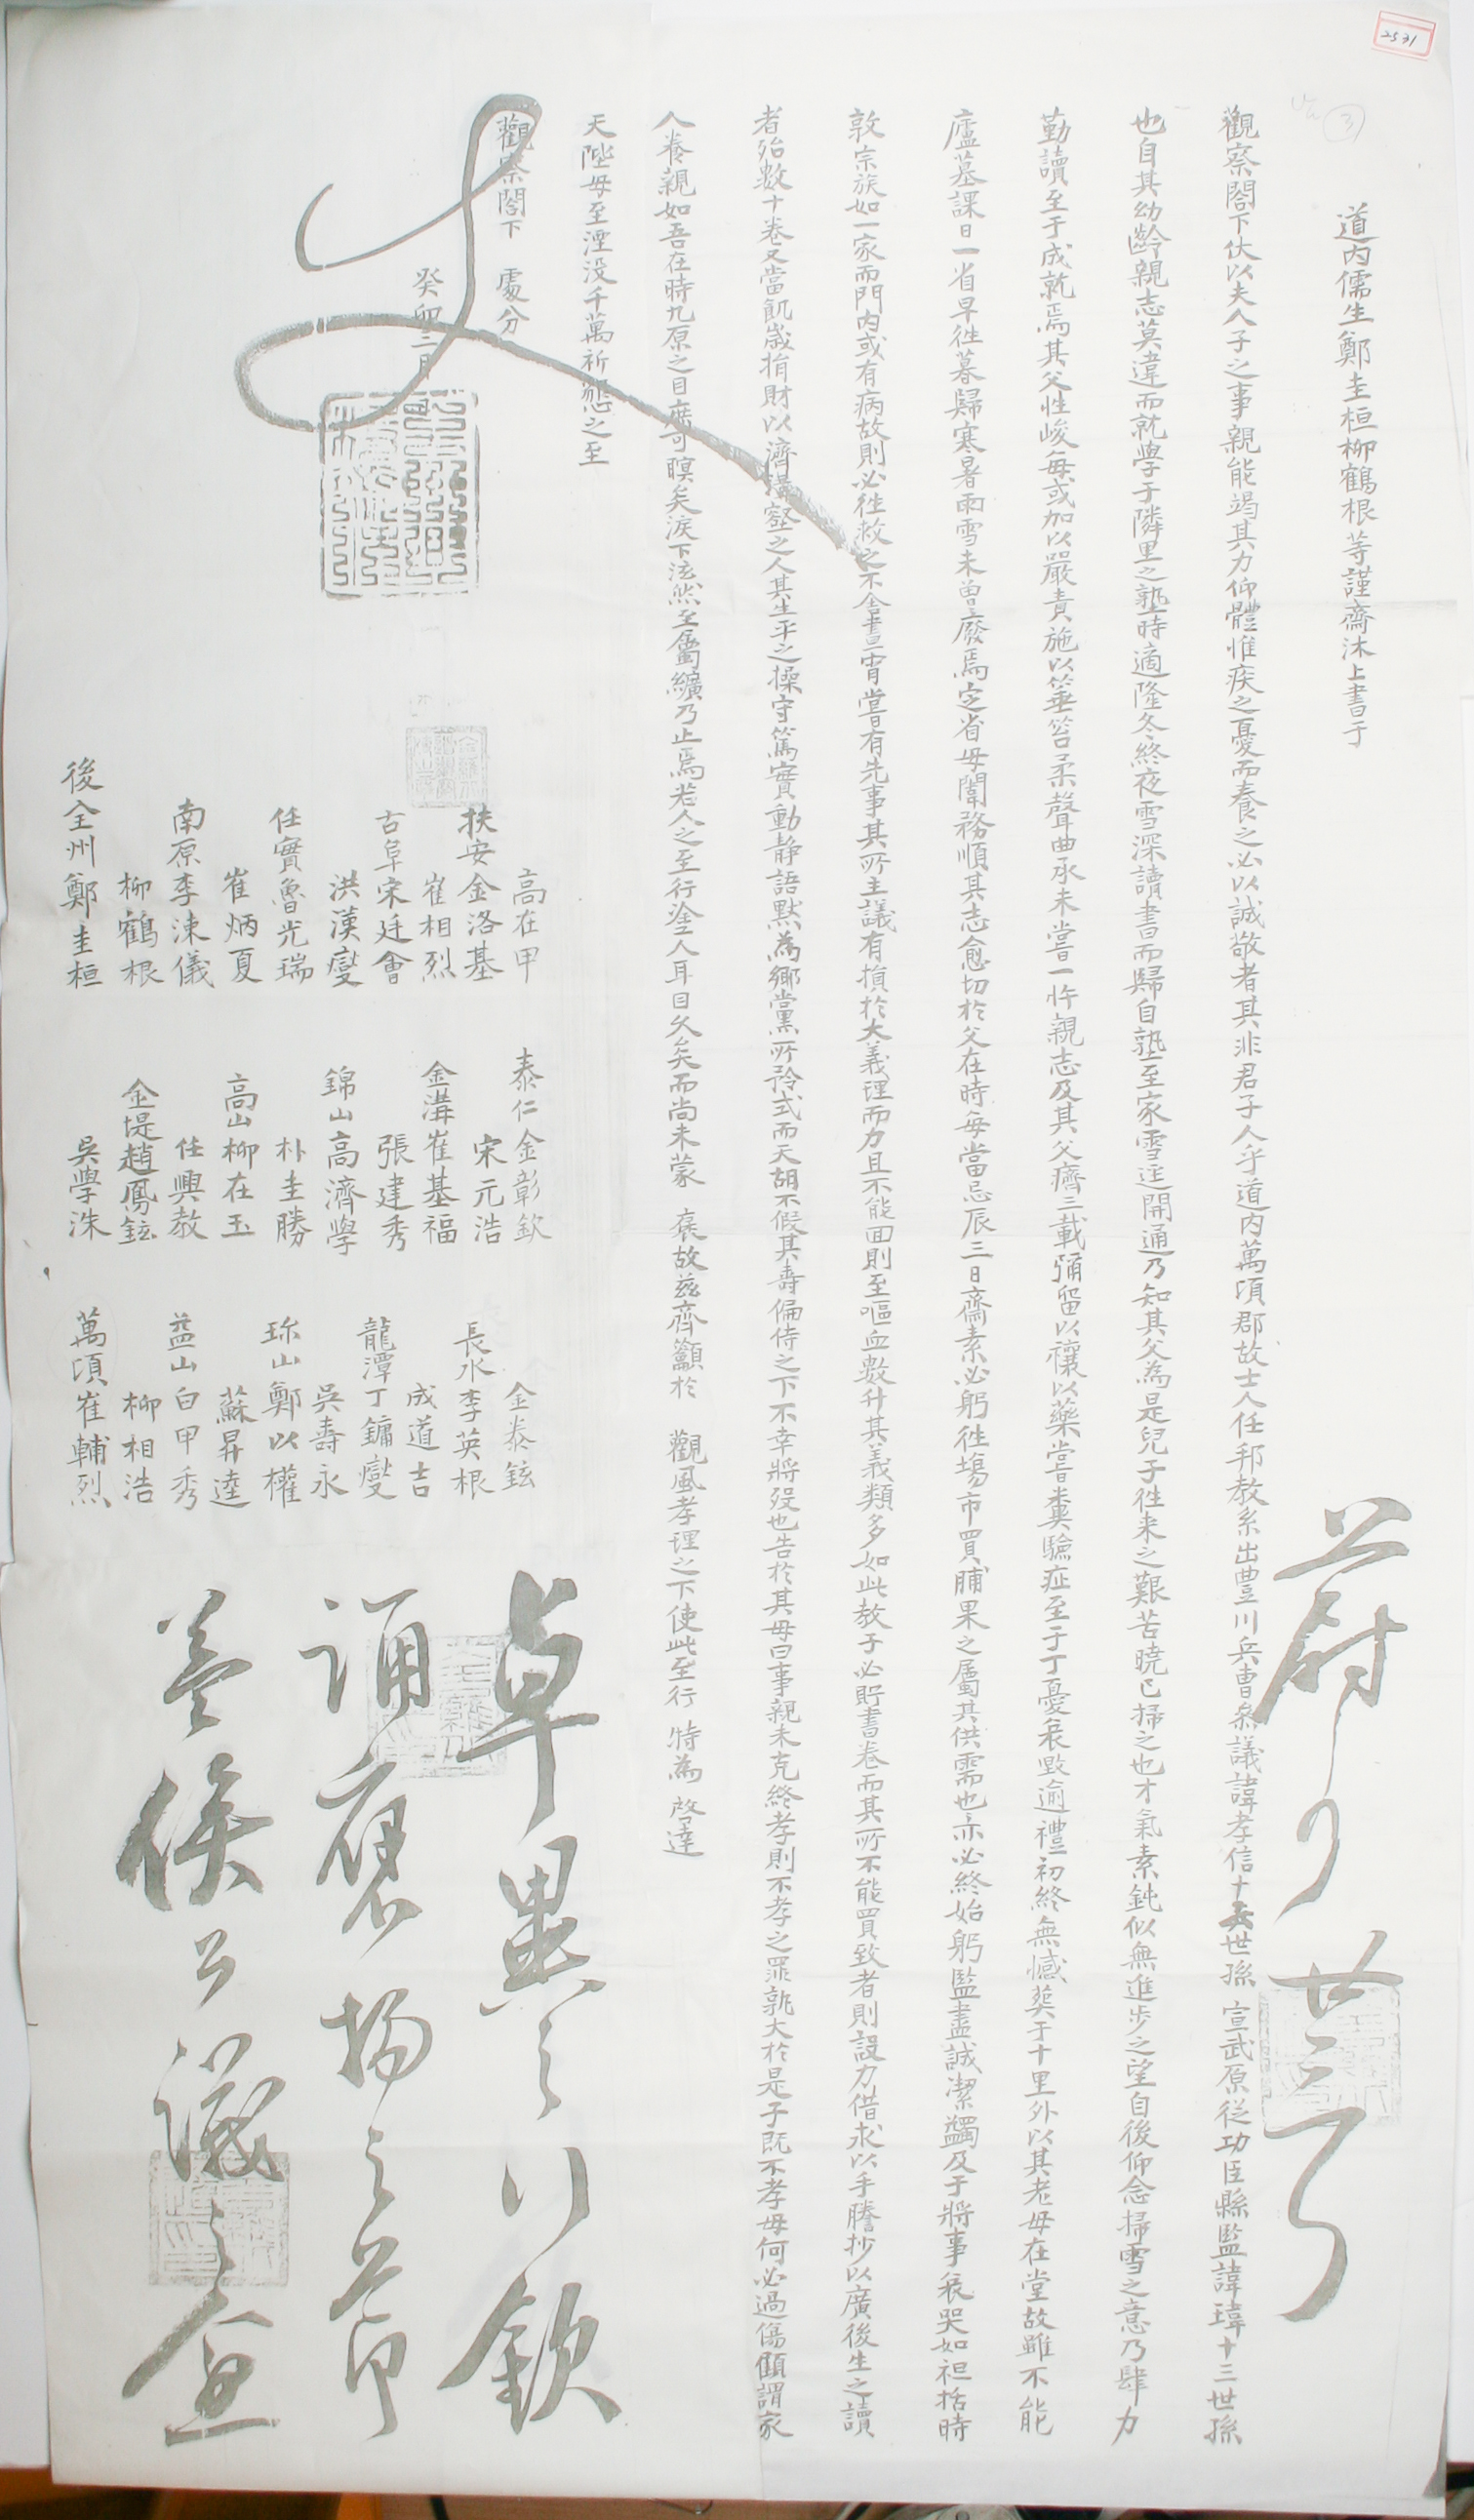 2531
道內儒生鄭圭桓柳鶴根等謹齋沐上書于
觀察閤下伏以夫人子之事親能竭其力仰體惟疾之憂而養之必以誠敬者其非君子人乎道內萬頃郡故士人任邦敎系出豊川兵曹參議諱孝信十五世孫 宣武原從功臣縣監諱瑋十三世孫
也自其幼齡親志莫違而就學于隣里之塾時適隆冬終夜雪深讀書而歸自塾至家雪逕開通乃知其父為是兒子徃来之艱苦曉已掃之也才氣素鈍似無進步之望自後仰念掃雪之意乃肆力
勤讀至于成就焉其父性峻每或加以嚴責施以箠笞柔聲曲承未嘗一忤親志及其父癠三載彌留以禳以藥嘗糞驗症至于丁憂哀毁逾禮初終無憾葬于十里外以其老母在堂故雖不能
廬墓課日一省早徃暮歸寒暑雨雪未曾廢焉定省母闈務順其志愈切於父在時每當忌辰三日齋素必躬徃場市買脯果之屬其供需也亦必終始躬監盡誠潔蠲及于將事哀哭如袒括時
敦宗族如一家而門內或有病故則必徃救之不舍晝宵嘗有先事其所主議有損於大義理而力且不能回則至嘔血數升其義類多如此敎子必貯書卷而其所不能買致者則設力借求以手謄抄以廣後生之讀
者殆數十卷又當飢歲捐財以濟溝壑之人其生平之操守篤實動静語默為鄉黨所矜式而天胡不假其壽偏侍之下不幸將殁也告於其母曰事親未克終孝則不孝之罪孰大於是子旣不孝母何必過傷願謂家
人養親如吾在時九原之目庶可瞑矣涙下泫然至屬纊乃止焉若人之至行塗人耳目久矣而尚未蒙 褒故玆齊籲於 觀風孝理之下使此至行 特為 啓達
天陛毋至湮没千萬祈懇之至
觀察閤下 處分
癸卯二月
高在甲
扶安金洛基
崔相烈
古阜宋廷會
洪漢燮
任實魯光瑞
崔炳夏
南原李涷儀
柳鶴根
後全州鄭圭桓
泰仁金彰欽
宋元浩
金溝崔基福
張建秀
錦山高濟學
朴圭勝
高山柳在玉
任興敎
金堤趙鳳鉉
吳學洙
金泰鉉
長水李英根
成道吉
龍潭丁鏞燮
吳壽永
珎山鄭以權
蘇昇逵
益山白甲秀
柳相浩
萬頃崔輔烈
卓異之行欽
誦褒揚之節
盖俟公議之僉